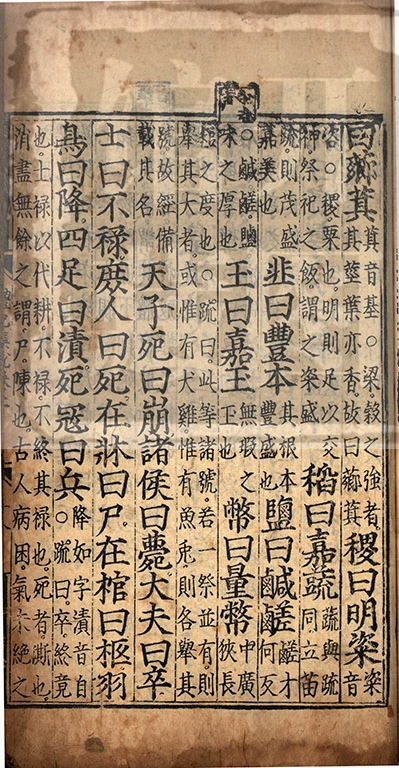 曰薌萁萁音基○梁穀之強者其莖葉亦香故曰薌萁稷曰明粢粢音
咨○稷粟也明則足以交神祭祀之飯謂之粢盛稻曰嘉蔬蔬與疏同立苗
疏則茂盛嘉美也韭曰豐本其根本豐盛也鹽曰鹹鹺鹺才何反
○鹹鹺鹽味之厚也玉曰嘉玉無瑕之玉也幣曰量幣中廣狹長
短之度也○疏曰此等諸號若一祭並有則舉其大者或惟有犬雞惟有魚兔則各舉其
號故經備載其名天子死曰崩諸侯曰薨大夫曰卒
士曰不祿庶人曰死在牀曰尸在棺曰柩羽
鳥曰降四足曰漬死寇曰兵降如字漬音自○疏曰卒終竟
也士祿以代耕不祿不終其祿也死者澌也消盡無餘之謂尸陳也古人病困氣未絕之